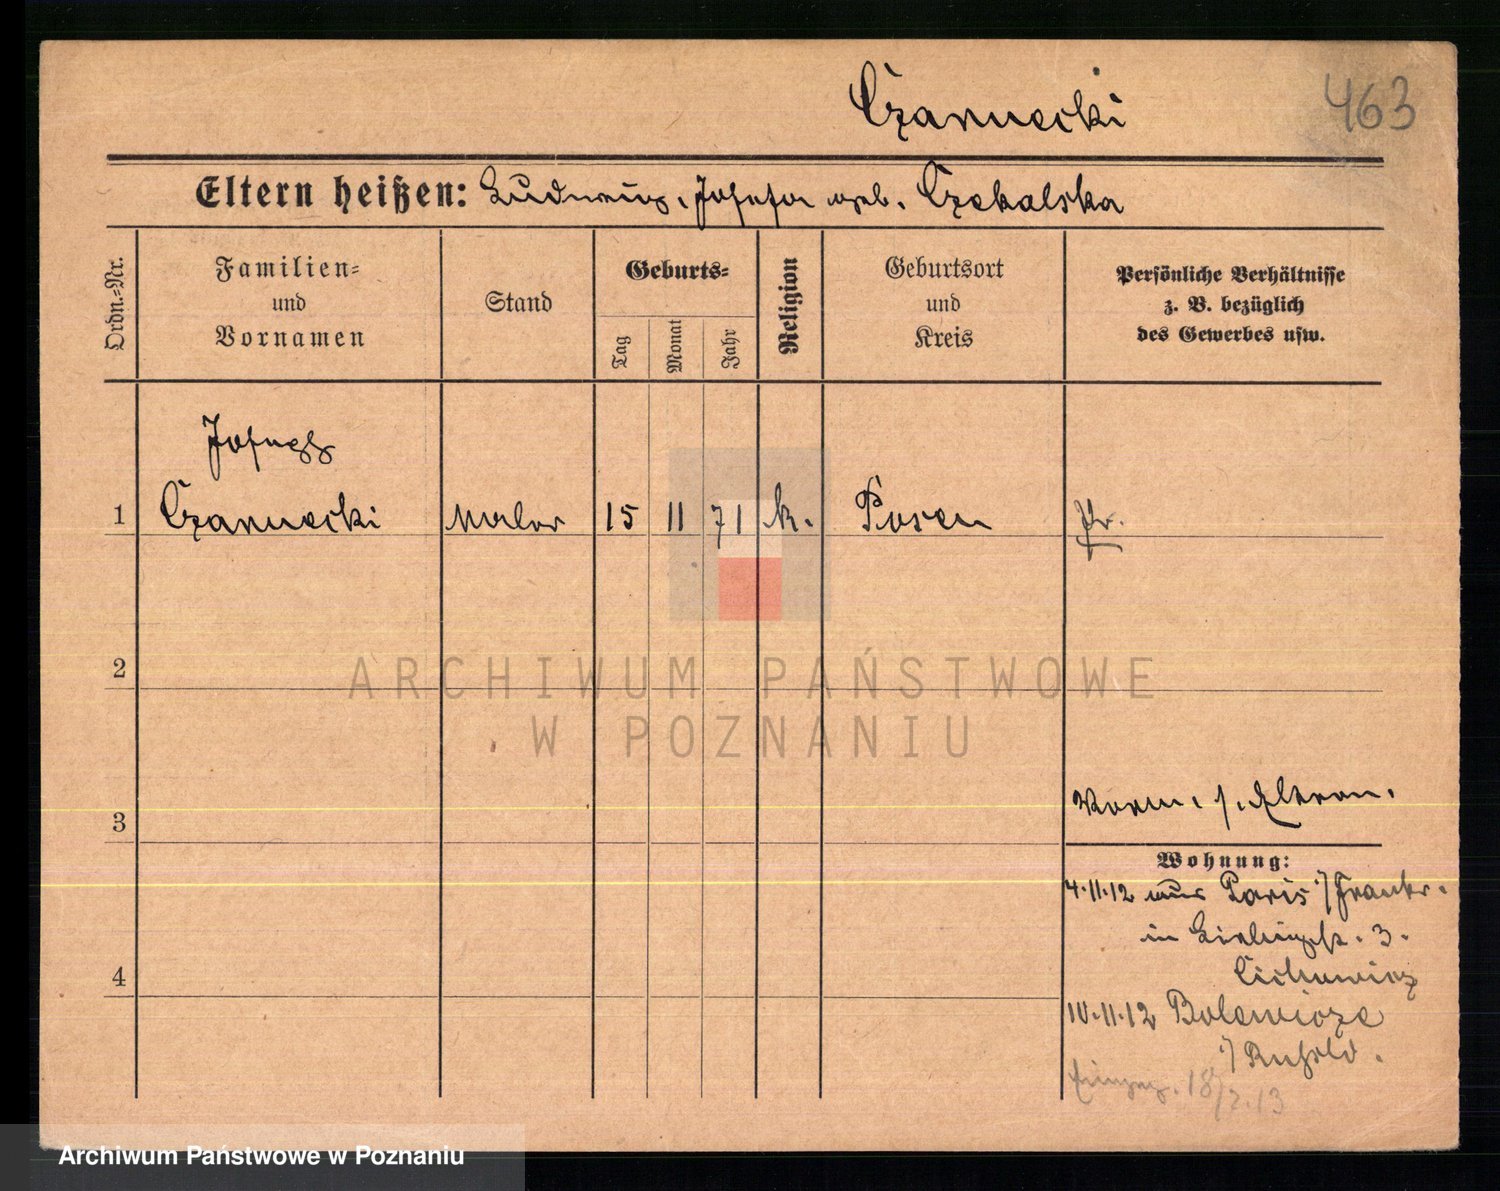 Czarnecki
463
Eltern heißen: Ludwig, Josefa geb. Czekalska
Ordn.-Nr.
Familien-
und
Vornamen
Stand
Geburts-
Tag
Monat
Jahr
Religion
Geburtsort
und
Kreis
Persönliche Verhältnisse
z. B. bezüglich
des Gewerbes usw.
Joseph
1 Czarnecki Maler 15 11 71 k. Posen
2
ARCHIWUM PAŃSTWOWE
W POZNANIU
Vorm. s. Eltern.
3
Wohnung:
4.11.12 aus Paris i/Frankr.
in 3.
Cichowicz
4
10.11.12 Bolewicze
i/Rußld.
18/2.13
Archiwum Państwowe w Poznaniu